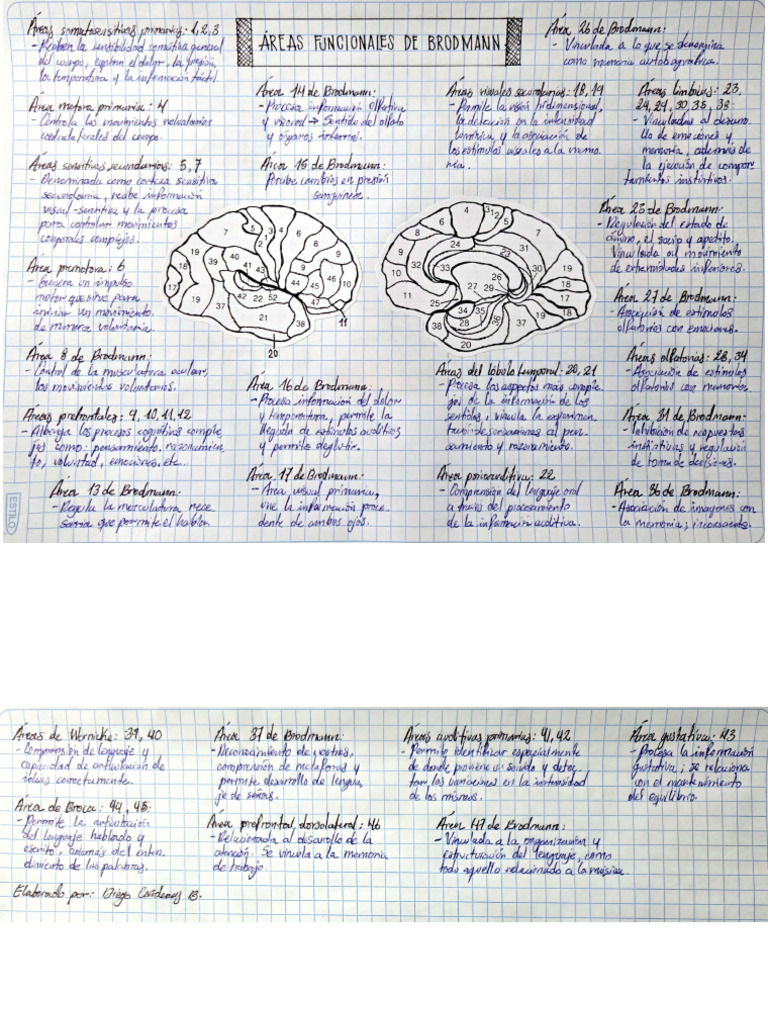 ÁREAS FUNCIONALES DE BRODMANN
Áreas somatosensitivas primarias: 1, 2, 3
- Reciben la sensibilidad somática general
del cuerpo, captan el dolor, la presión,
la temperatura y la información táctil
Área motora primaria: 4
- Controla los movimientos voluntarios
contralaterales del cuerpo.
Áreas sensitivas secundarias: 5, 7
- Denominada como corteza sensitiva
secundaria, recibe información
visual-sensitiva y la procesa
para controlar movimientos
corporales complejos.
Área premotora: 6
- Genera un impulso
motor que sirve para
iniciar un movimiento
de manera voluntaria.
Área 8 de Brodmann:
- Control de la musculatura ocular,
los movimientos voluntarios.
Áreas prefrontales: 9, 10, 11, 12
- Alberga los procesos cognitivos comple
jos como: pensamiento, razonamien
to, voluntad, emociones, etc..
Área 13 de Brodmann:
- Regula la musculatura nece
saria que permite el habla.
Área 14 de Brodmann:
- Procesa información olfativa
y visceral → Sentido del olfato
y órganos internos.
Área 15 de Brodmann:
Percibe cambios en presión
sanguínea.
Área 16 de Brodmann:
- Procesa información del dolor
y temperatura, permite la
llegada de estímulos auditivos
y permite deglutir.
Área 17 de Brodmann:
- Área visual primaria,
une la información proce
dente de ambos ojos.
Áreas visuales secundarias: 18, 19
- Permite la visión tridimensional,
la detección en la intensidad
lumínica y la asociación de
los estímulos visuales a la memo
ria.
Áreas del lóbulo temporal: 20, 21
- Procesa los aspectos más comple
jos de la información de los
sentidos, vincula la experimen
tación de sensaciones al pen
samiento y razonamiento.
Área psicoauditiva: 22
- Comprensión del lenguaje oral
a través del procesamiento
de la información auditiva.
Área 26 de Brodmann:
- Vinculada a lo que se denomina
como memoria autobiográfica.
Áreas límbicas: 23,
24, 29, 30, 35, 38:
- Vinculadas al desarro
llo de emociones y
memoria, además de
la ejecución de compor
tamientos instintivos.
Área 25 de Brodmann:
- Regulación del estado de
ánimo, el sueño y apetito.
Vinculada al movimiento
de extremidades inferiores.
Área 27 de Brodmann:
- Asociación de estímulos
olfatorios con emociones.
Áreas olfatorias: 28, 34
- Asociación de estímulos
olfatorios con memorias.
Área 31 de Brodmann:
- Inhibición de respuestas
instintivas y regulación
de toma de decisiones.
Área 36 de Brodmann:
- Asociación de imágenes con
la memoria;
7 5 3 1 2 4 6 8 9 40 41 43 39 18 19 17 37 42 22 52 44 45 46 10 47 21 38 11 20
4 3 1 2 5 7 6 8 9 24 31 23 32 33 10 11 12 25 26 27 29 30 19 18 17 18 19 34 35 28 36 37 38 20
ESTILO
Áreas de Wernicke: 39, 40
- Comprensión de lenguaje y
capacidad de articulación de
ideas correctamente.
Área de Broca: 44, 45:
- Permite la articulación
del lenguaje hablado y
escrito, además del enten
dimiento de las palabras.
Elaborado por: Diego Cárdenas B.
Área 37 de Brodmann:
- Reconocimiento de rostros,
comprensión de metáforas y
permite desarrollo de lengua
je de señas.
Área prefrontal dorsolateral: 46
- Relacionada al desarrollo de la
atención. Se vincula a la memoria
de trabajo
Áreas auditivas primarias: 41, 42
- Permite identificar espacialmente
de donde proviene un sonido y detec
tar las variaciones en la intensidad
de los mismos.
Área 47 de Brodmann:
- Vinculada a la organización y
estructuración del lenguaje, como
todo aquello relacionado a la música.
Área gustativa: 43
- Procesa la información
gustativa; se relaciona
con el mantenimiento
del equilibrio.